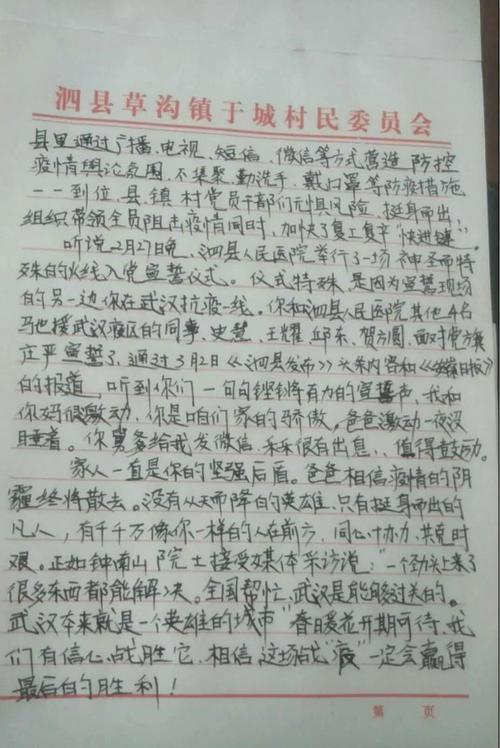 泗县草沟镇于城村民委员会
县里通过广播、电视、短信、微信等方式营造防控
疫情舆论氛围,不集聚、勤洗手、戴口罩等防疫措施
一一到位,县、镇、村党员干部们无惧风险,挺身而出,
组织带领全员阻击疫情同时,加快了复工复产"快进键"。
听说2月27日晚,泗县人民医院举行了一场神圣而特
殊的火线入党宣誓仪式。仪式特殊,是因为宣誓现场
的另一边你在武汉抗疫一线。你和泗县人民医院其他4名
驰援武汉疫区的同事,史慧、王耀、邱东、贺方圆,面对党旗
庄严宣誓了,通过3月2日《泗县发布》头条内容和《日报》
的报道,听到你们一句句铿锵有力的宣誓声,我和
你妈很激动,你是咱们家的骄傲,爸爸激动一夜没
睡着。你舅爹给我发微信,乐乐很有出息,值得鼓动。
家人一直是你的坚强后盾。爸爸相信疫情的阴
霾终将散去。没有从天而降的英雄,只有挺身而出的
凡人,有千千万像你一样的人在前方,同心协力,共克时
艰。正如钟南山院士接受媒体采访说:"一个劲头上来了
很多东西都能解决。全国帮忙,武汉是能够过关的。
武汉本来就是一个英雄的城市"春暖花开期可待,我
们有信心战胜它,相信这场战"疫"一定会赢得
最后的胜利!
第 页